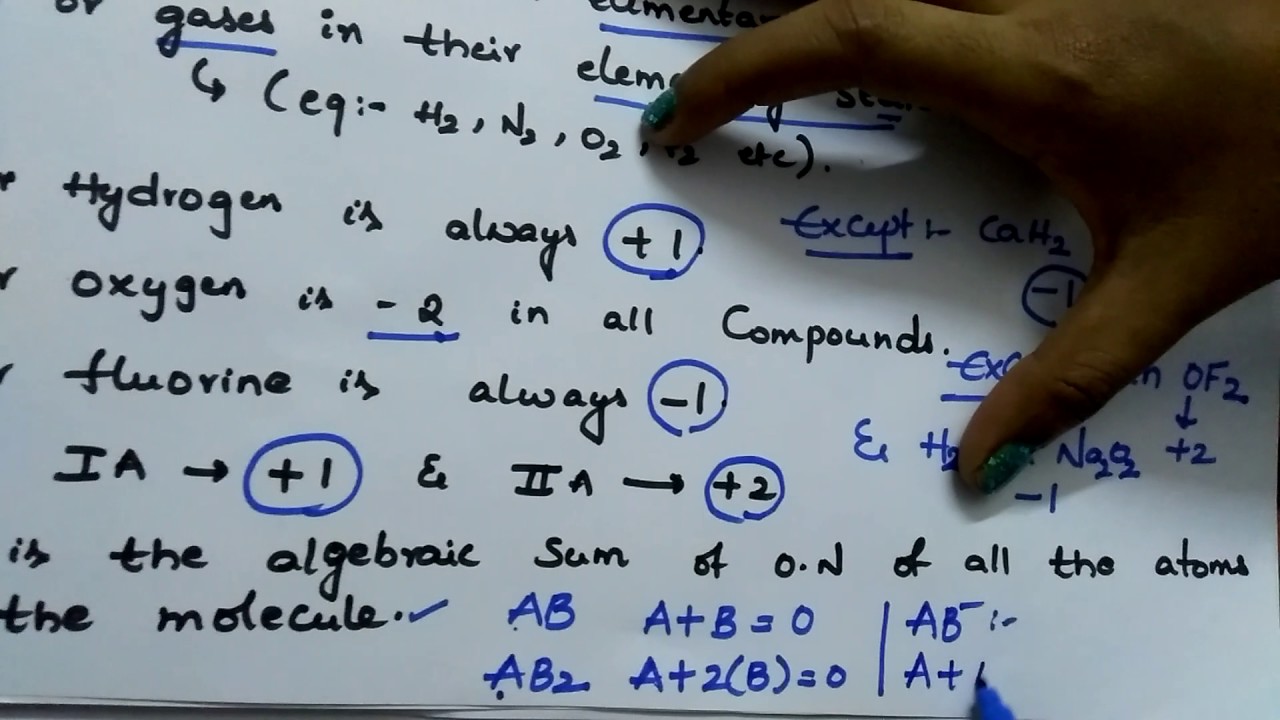 or gases in their elementary
elem state
↳ (eg:- H₂, N₂, O₂, etc).
Hydrogen is always +1. Except:- CaH₂
-1
oxygen is -2 in all Compounds.
in OF₂
fluorine is always -1.
& H₂ Na₂O₂ +2
-1
IA → +1 & IIA → +2
is the algebraic Sum of O.N of all the atoms
the molecule. ✓ AB A+B=0 | AB⁻:-
AB₂. A+2(B)=0 | A+